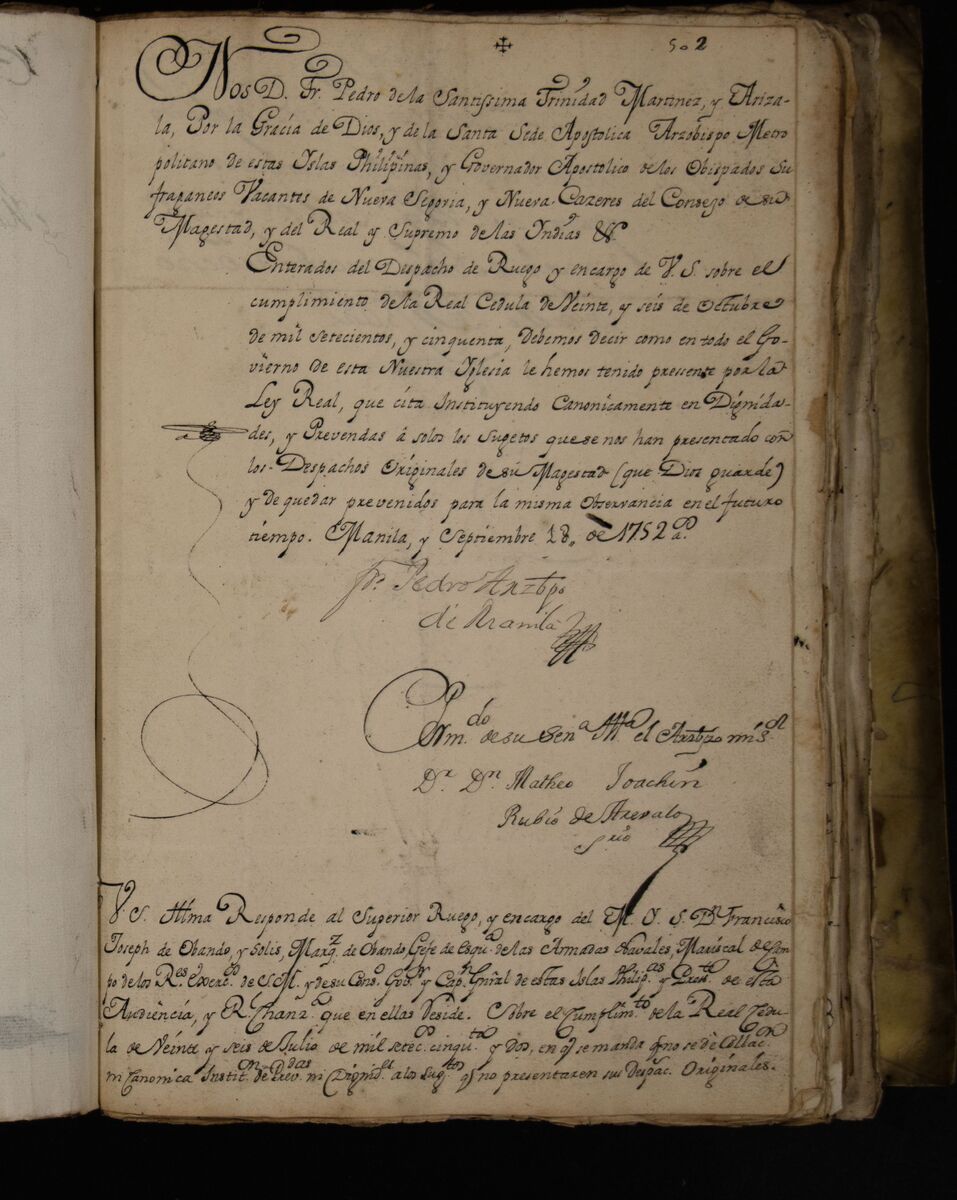 ✠ 502
Nos D. Fr. Pedro de la Santissima Trinidad Martinez, y Ariza-
la, Por la Gracia de Dios, y de la Santa Sede Apostolica Arzobispo Metro
politano de estas Islas Philipinas, y Governador Apostolico de los Obispados Su
fraganeos Vacantes de Nueva Segovia, y Nueva-Cazeres del Consejo de su
Magestad, y del Real y Supremo de las Indias &ª.
Enterados del Despacho de Ruego y encargo de V. S. sobre el
cumplimiento de la Real Cedula de Veinte, y seis de Octubre
de mil setecientos, y cinquenta, Debemos decir como en todo el Go-
vierno de esta Nuestra Iglesia le hemos tenido pressente por la
Ley Real, que cita Instituyendo Canonicamente en Dignida-
des, y Prevendas â solos los Sugetos que se nos han presentado con
los Despachos Originales de su Magestad (que Dios guarde)
y de quedar prevenidos para la misma Observancia en el futuro
tiempo. Manila, y Septiembre 18. de 1752 aº.
Fr. Pedro Arzbpo
de Manila
Pr mdo de su Senª Illmª el Arzbpo mi Sr
Dr. Dn Matheo Joachin
Rubio de Arevalo
Srio
V S. Illma Responde al Superior Ruego, y encargo del M. I. S. Dn Francisco
Joseph de Obando, y Solis, Marqz de Obando, Gefe de Esquª de las Armadas Navales, Mariscal de Cam
po de los Res Exercos de S M. y de su Consº Govor y Capn Gñral de estas Islas Philipas y Presite de esta
Audiencia, y Rl Chanzª que en ellas Reside. Sobre el Cumplimto de la Real Zedu-
la de Veinte y seis de Julio de mil setecos cinquta y Dos, en q se manda q no se dè Collacon
ni Canonica Institon de Prevdas ni Dignides a los Sugtos q no presentaren sus Despacos Originales.